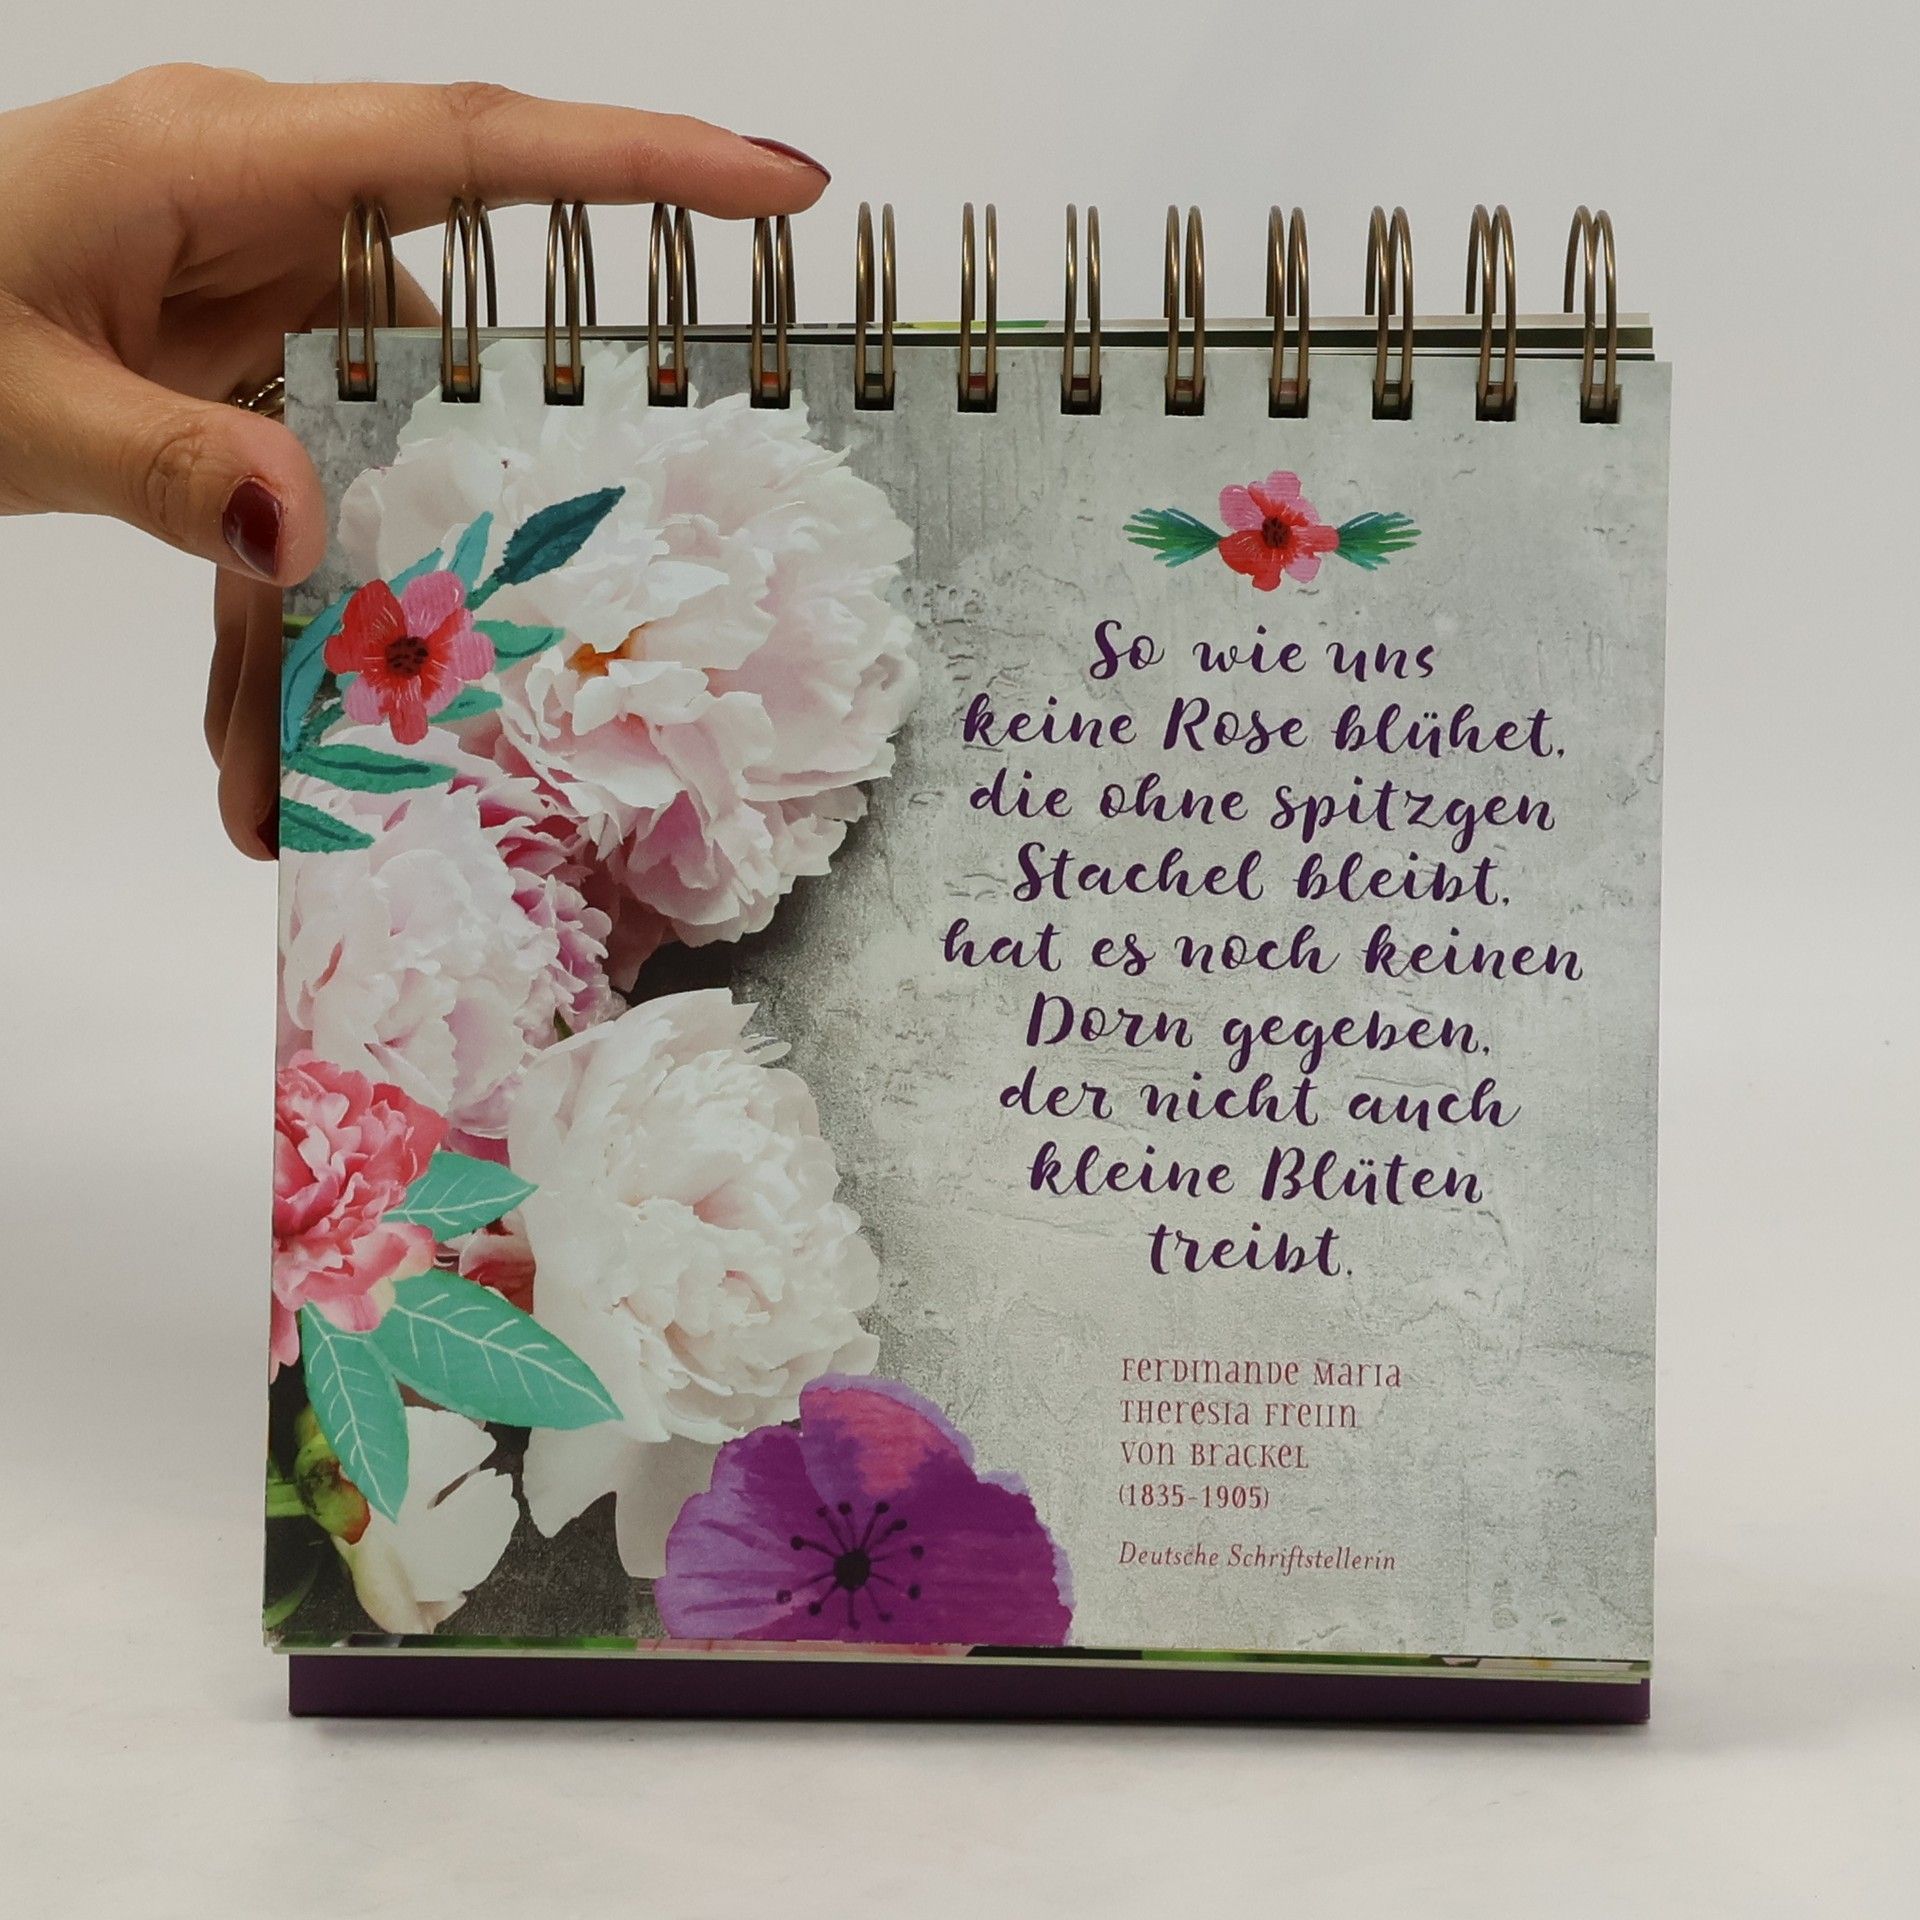 So wie uns
keine Rose blühet,
die ohne spitzgen
Stachel bleibt,
hat es noch keinen
Dorn gegeben,
der nicht auch
kleine Blüten
treibt.
Ferdinande Maria
Theresia Freiin
von Brackel
(1835-1905)
Deutsche Schriftstellerin